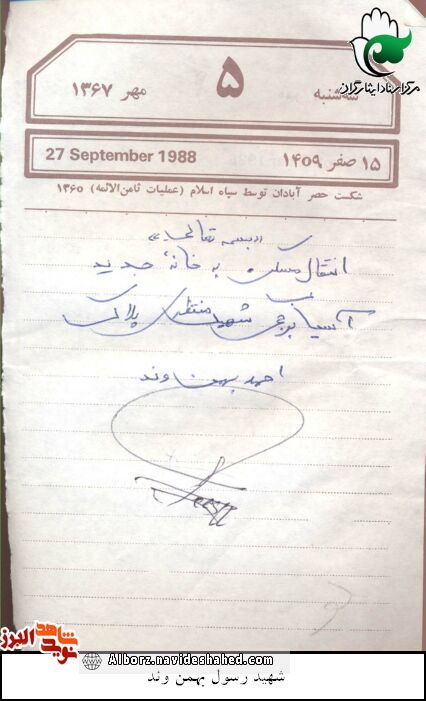 مرکز اسناد ایثارگران
سه‌شنبه
۵
مهر ۱۳۶۷
۱۵ صفر ۱۴۰۹
27 September 1988
شکست حصر آبادان توسط سپاه اسلام (عملیات ثامن‌الائمه) ۱۳۶۰
بسمه تعالی
انتقال مسکن به خانهٔ جدید
آسیا برجی شهید منتظری پلاک
احمد بهمن وند
نوید شاهد البرز
Alborz.navideshahed.com
شهید رسول بهمن وند